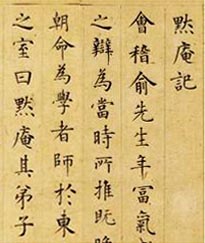 默庵記
會稽俞先生年冨氣
之辯為當時所推既
朝命為學者師於東
之室曰默庵其弟子